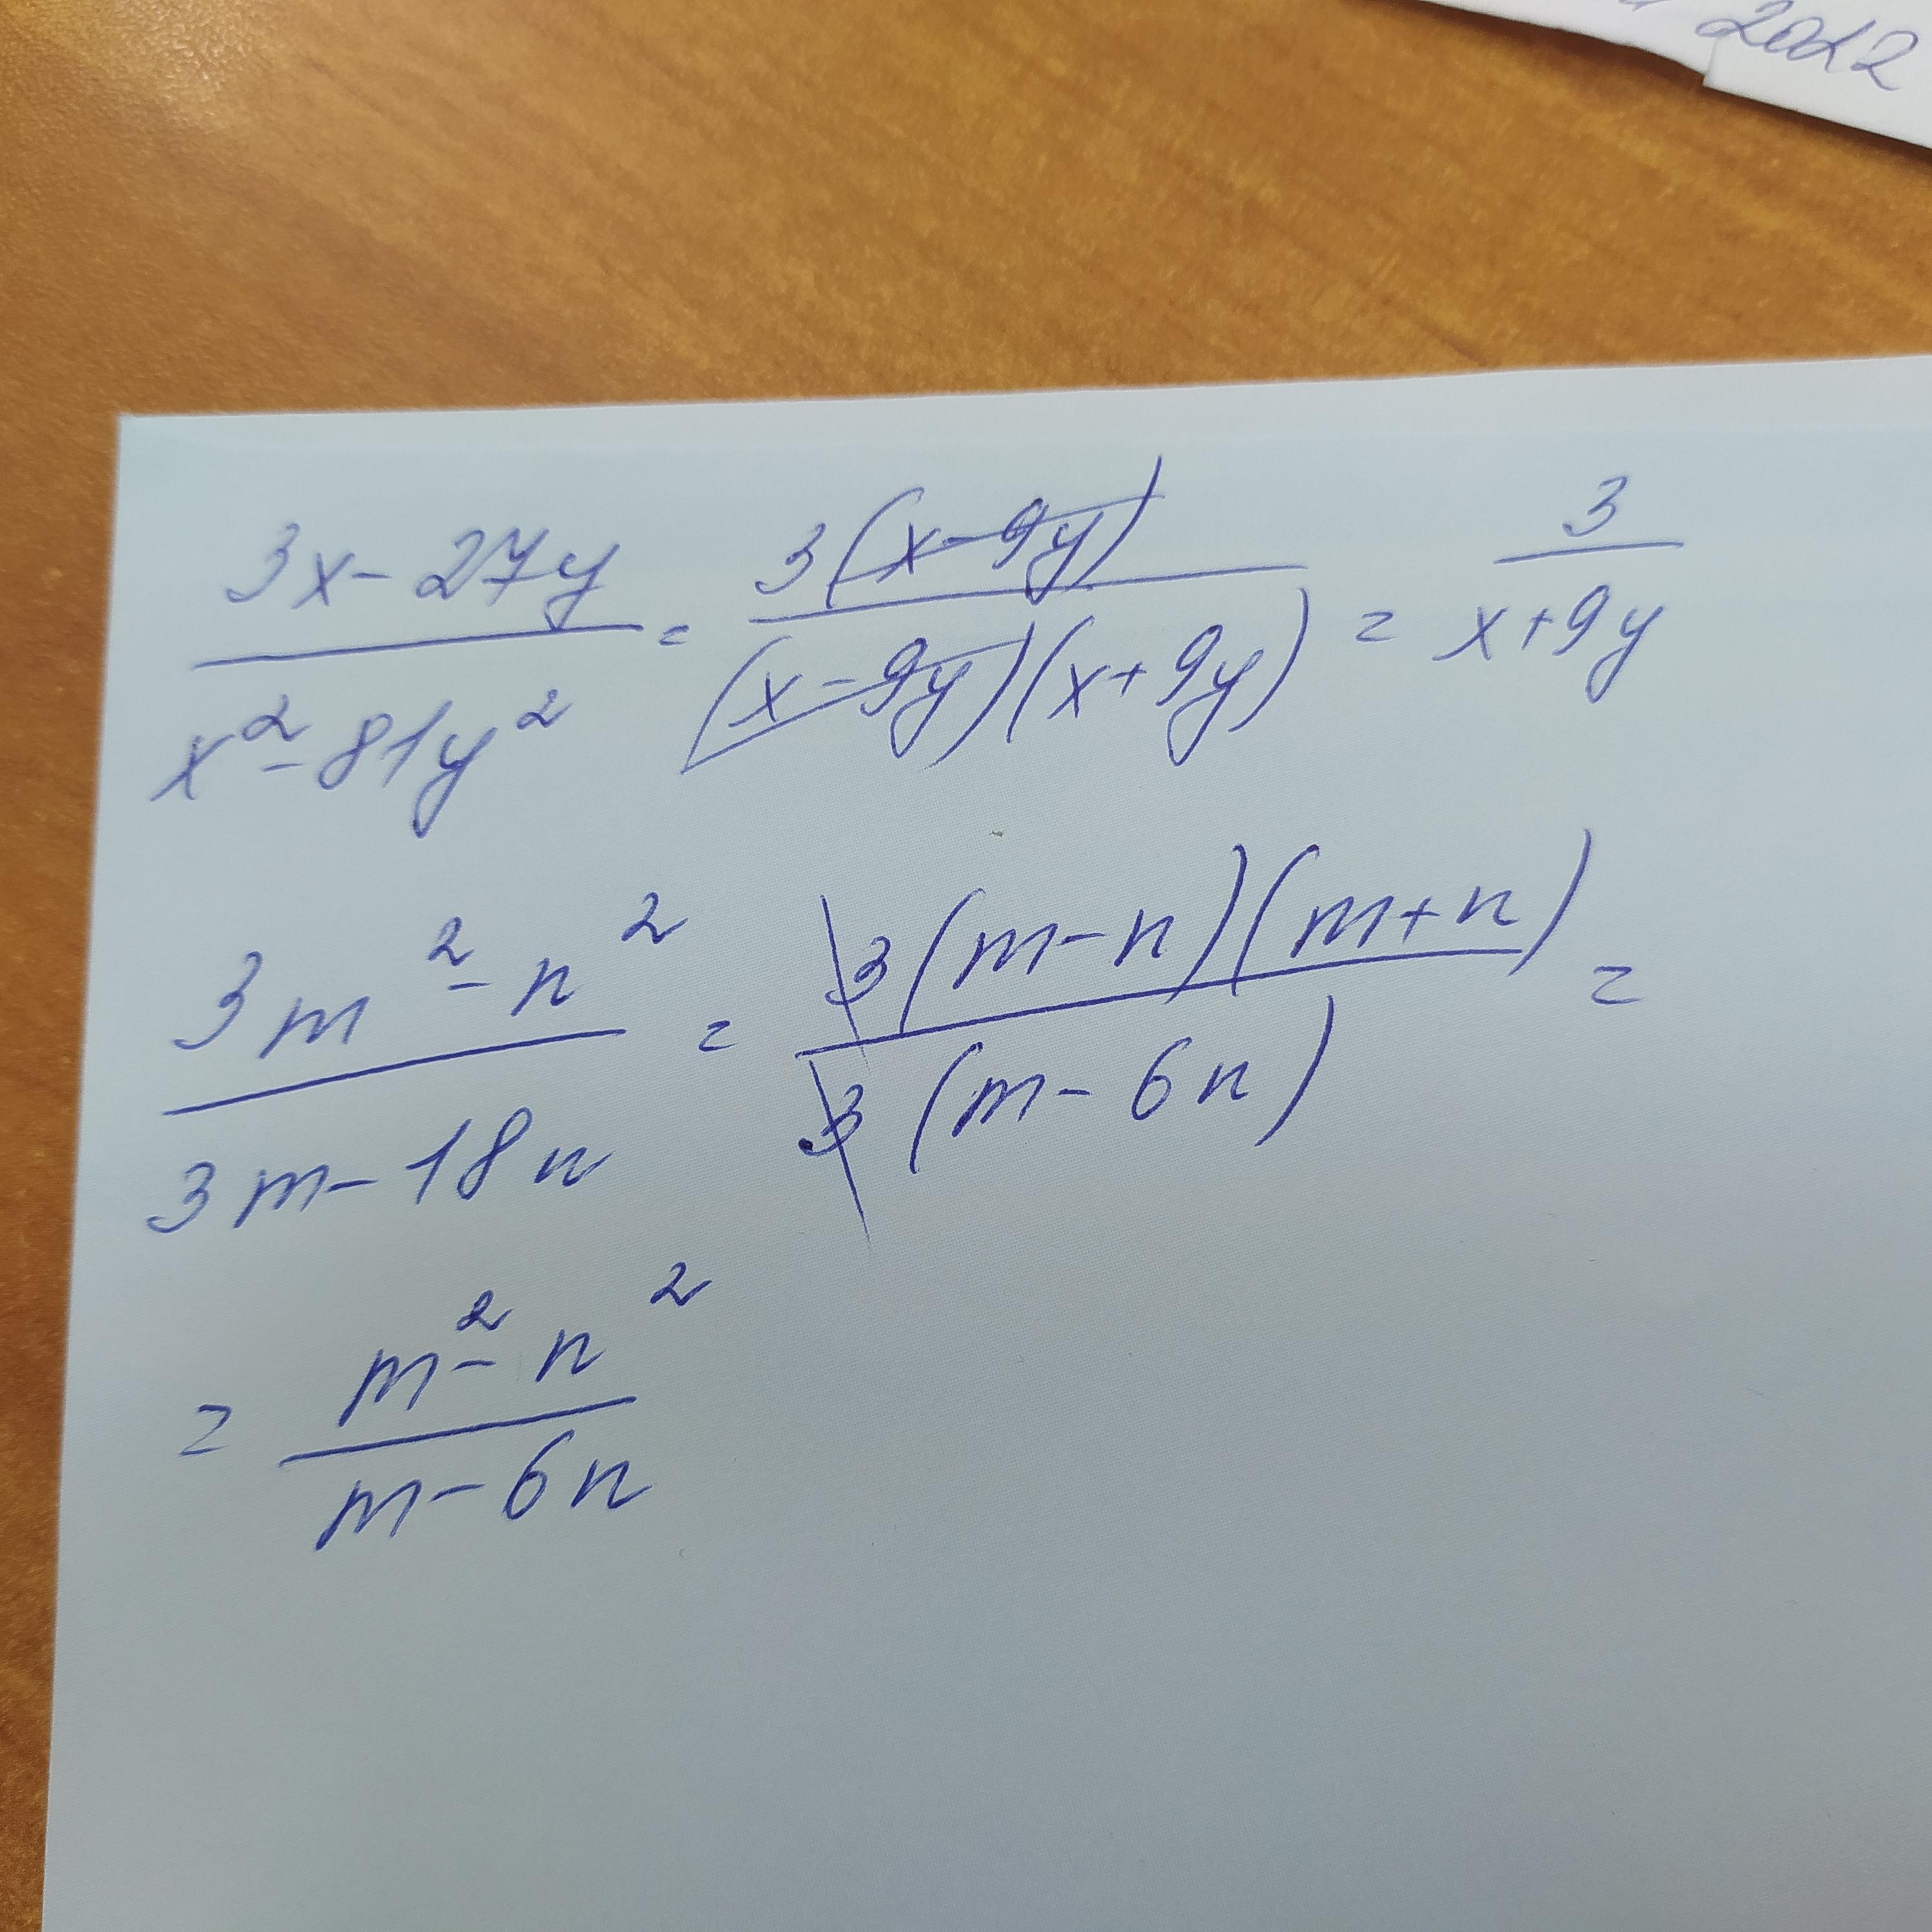 2022
(3x-27y)/(x²-81y²) = 3(x-9y)/((x-9y)(x+9y)) = 3/(x+9y)
(3m²-n²)/(3m-18n) = 3(m-n)(m+n)/(3(m-6n)) =
= (m²-n²)/(m-6n)